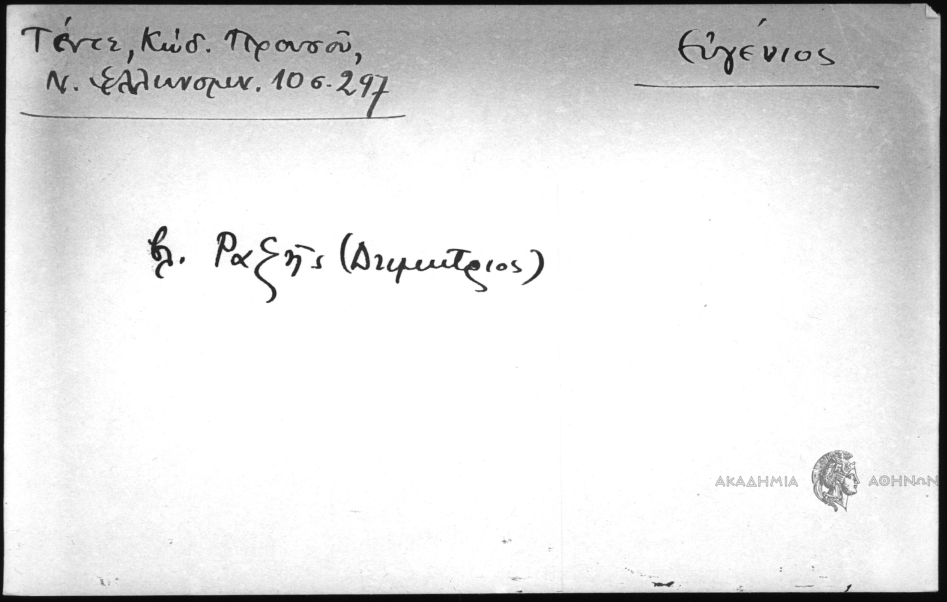 Τέντε, Κώδ. Προυσοῦ,
Ν. Ἑλληνομν. 10 σ. 297
Εὐγένιος
βλ. Ραζῆς (Δημήτριος)
ΑΚΑΔΗΜΙΑ ΑΘΗΝΩΝ